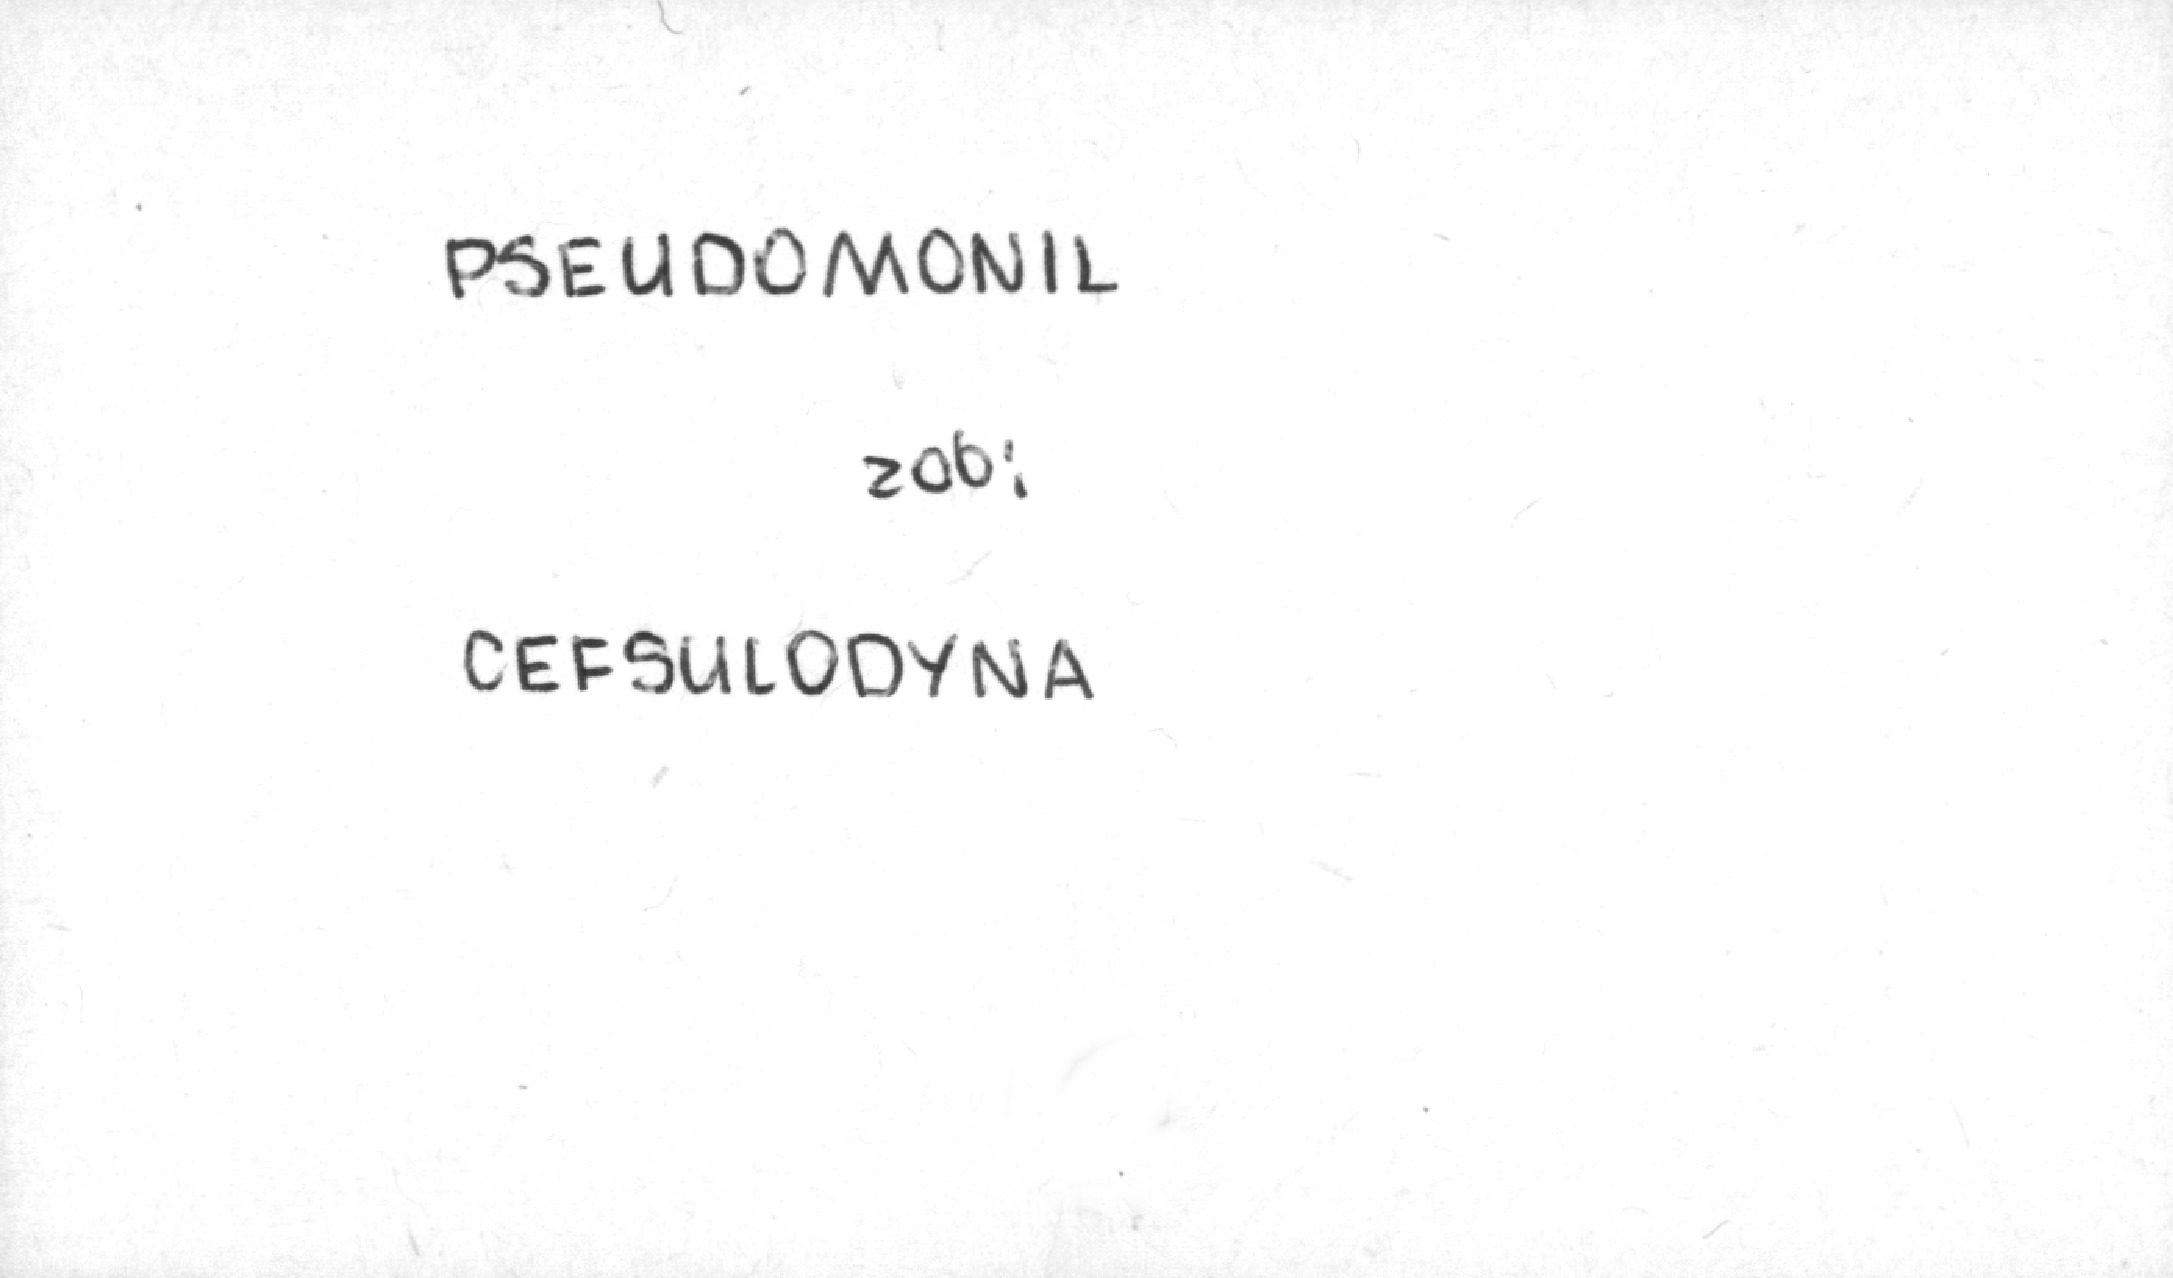 PSEUDOMONIL
zob:
CEFSULODYNA